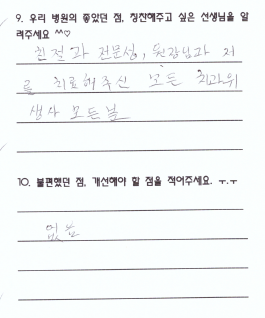 9. 우리 병원의 좋았던 점, 칭찬해주고 싶은 선생님을 알
려주세요 ^^♡
친절과 전문성, 원장님과 저
를 치료해주신 모든 치과위
생사 모든분
10. 불편했던 점, 개선해야 할 점을 적어주세요. ㅜ.ㅜ
없음